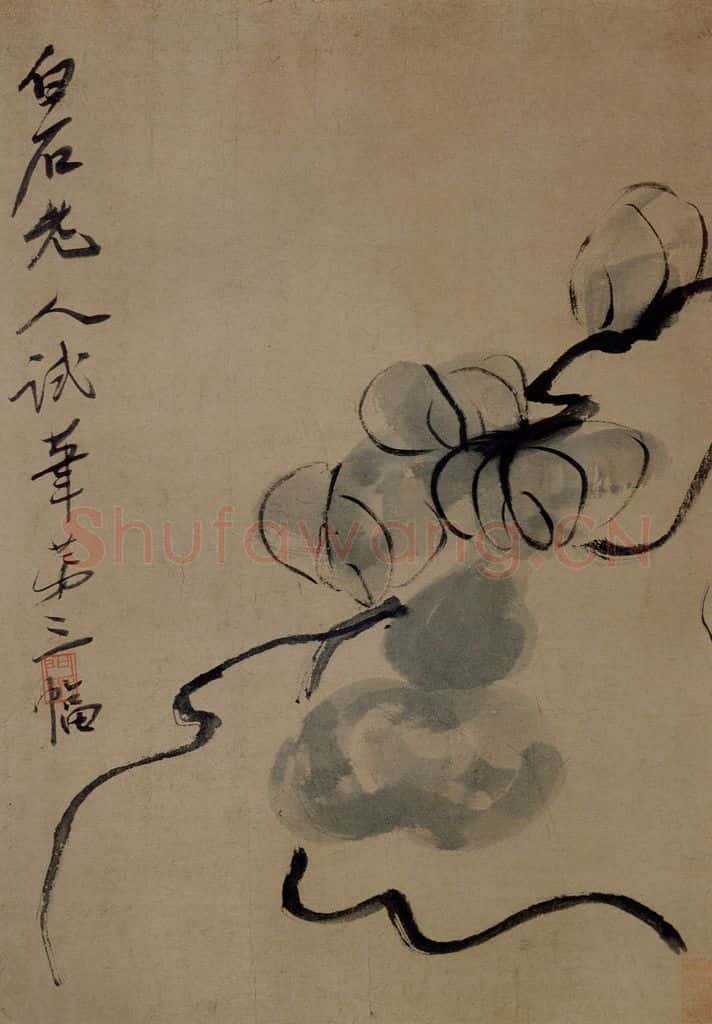 白石老人試筆第三幅
Shufawang.CN